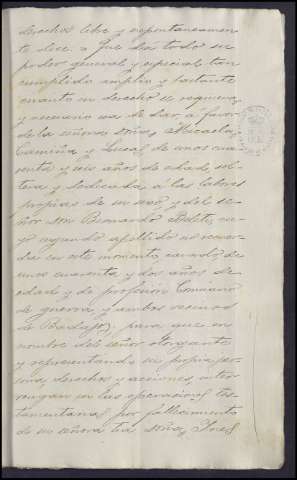 derechos libre y espontaneamen
te dice: Que da todo su
poder general y especial tan
cumplido amplio y bastante
cuanto en derecho se requiera
y necesario sea de dar á favor
de la señora Doña Micaela
Camiña y Leal de unos cua
renta y seis años de edad, sol
tera y dedicada á las labores
propias de su sexo y del se
ñor Don Bernardo cu
yo segundo apellido no recuer
da en este momento, casado de
unos cuarenta y dos años de
edad y de profesion Comisario
de guerra, y ambos vecinos
de Badajoz, para que en
nombre del señor otorgante
y representando su propia per
sona, derechos y acciones, inter
vengan en las operaciones tes
tamentarias por fallecimiento
de su señora tia Doña Ines